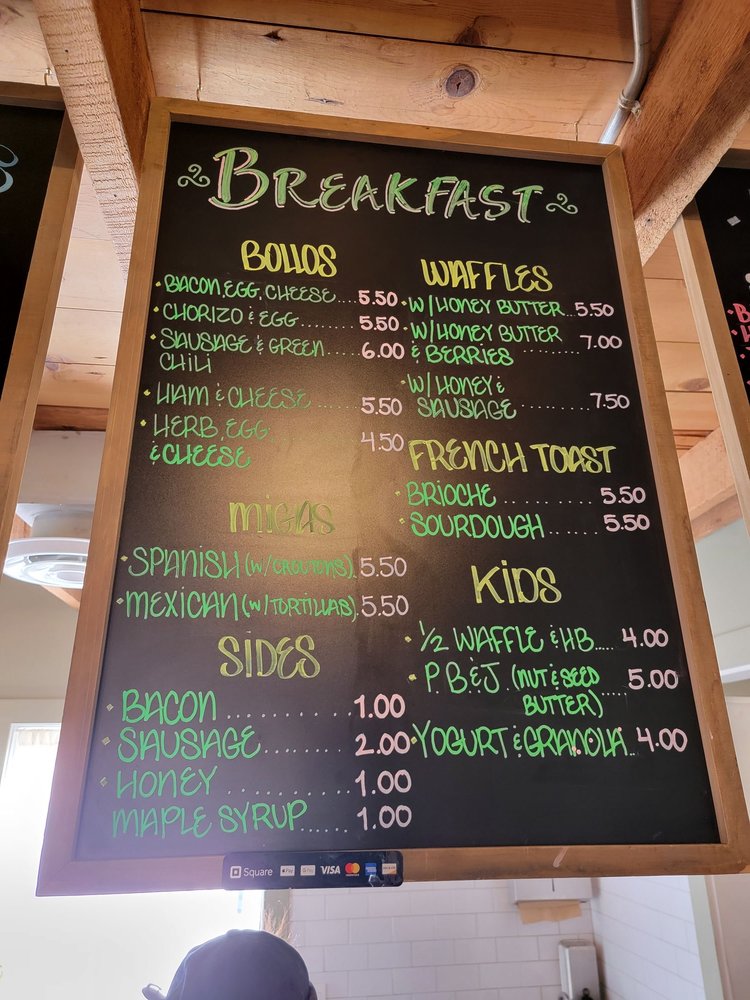 BREAKFAST
BOLLOS
• BACON, EGG, CHEESE.... 5.50
• CHORIZO & EGG....... 5.50
• SAUSAGE & GREEN .... 6.00
CHILI
• HAM & CHEESE....... 5.50
• HERB, EGG 4.50
& CHEESE
MIGAS
• SPANISH (W/CROUTONS). 5.50
• MEXICAN (W/TORTILLAS). 5.50
SIDES
• BACON ........... 1.00
• SAUSAGE......... 2.00
• HONEY ........... 1.00
MAPLE SYRUP...... 1.00
WAFFLES
• W/HONEY BUTTER.. 5.50
• W/HONEY BUTTER 7.00
& BERRIES ........
• W/HONEY &
SAUSAGE ........ 7.50
FRENCH TOAST
• BRIOCHE ......... 5.50
• SOURDOUGH ...... 5.50
KIDS
• 1/2 WAFFLE & HB..... 4.00
• P.B&J (NUT & SEED .... 5.00
BUTTER)
• YOGURT & GRANOLA.. 4.00
Square Pay G Pay VISA